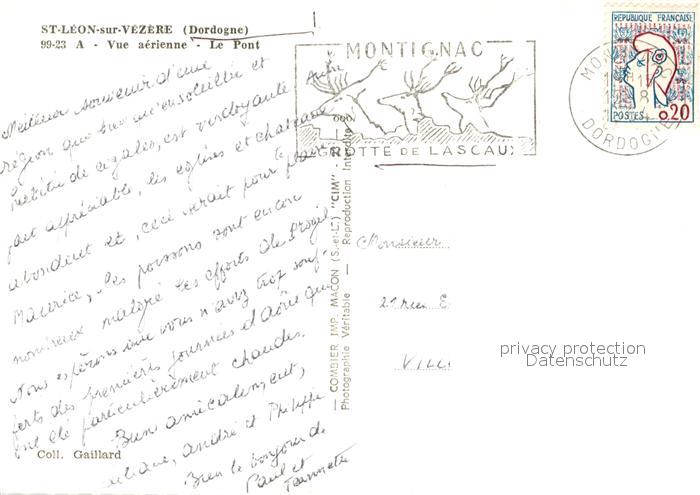 ST-LÉON-sur-VÉZÈRE (Dordogne)
99-23 A - Vue aérienne - Le Pont
Meilleur souvenir d'une
région que bien qu'ensoleillée et
de cigales, est verdoyante
fort appréciable, les églises et châteaux
abondent et, ceci serait pour plaire à
Maurice, les poissons sont encore
nombreux malgré les efforts de
Nous espérons que vous n'avez trop souf-
ferts des premières journées d'août qui
ont été particulièrement chaudes.
Bien amicalement,
Liliane, André et Philippe
Bien le bonjour de
Paul et
Jeannette
Coll. Gaillard
— COMBIER IMP. MACON (S.-et-L.) "CIM" —
Photographie Véritable — Reproduction Interdite
MONTIGNAC
GROTTE DE LASCAUX
REPUBLIQUE FRANÇAISE
POSTES 0,20
DORDOGNE
Monsieur
21 rue E
VILL
privacy protection
Datenschutz